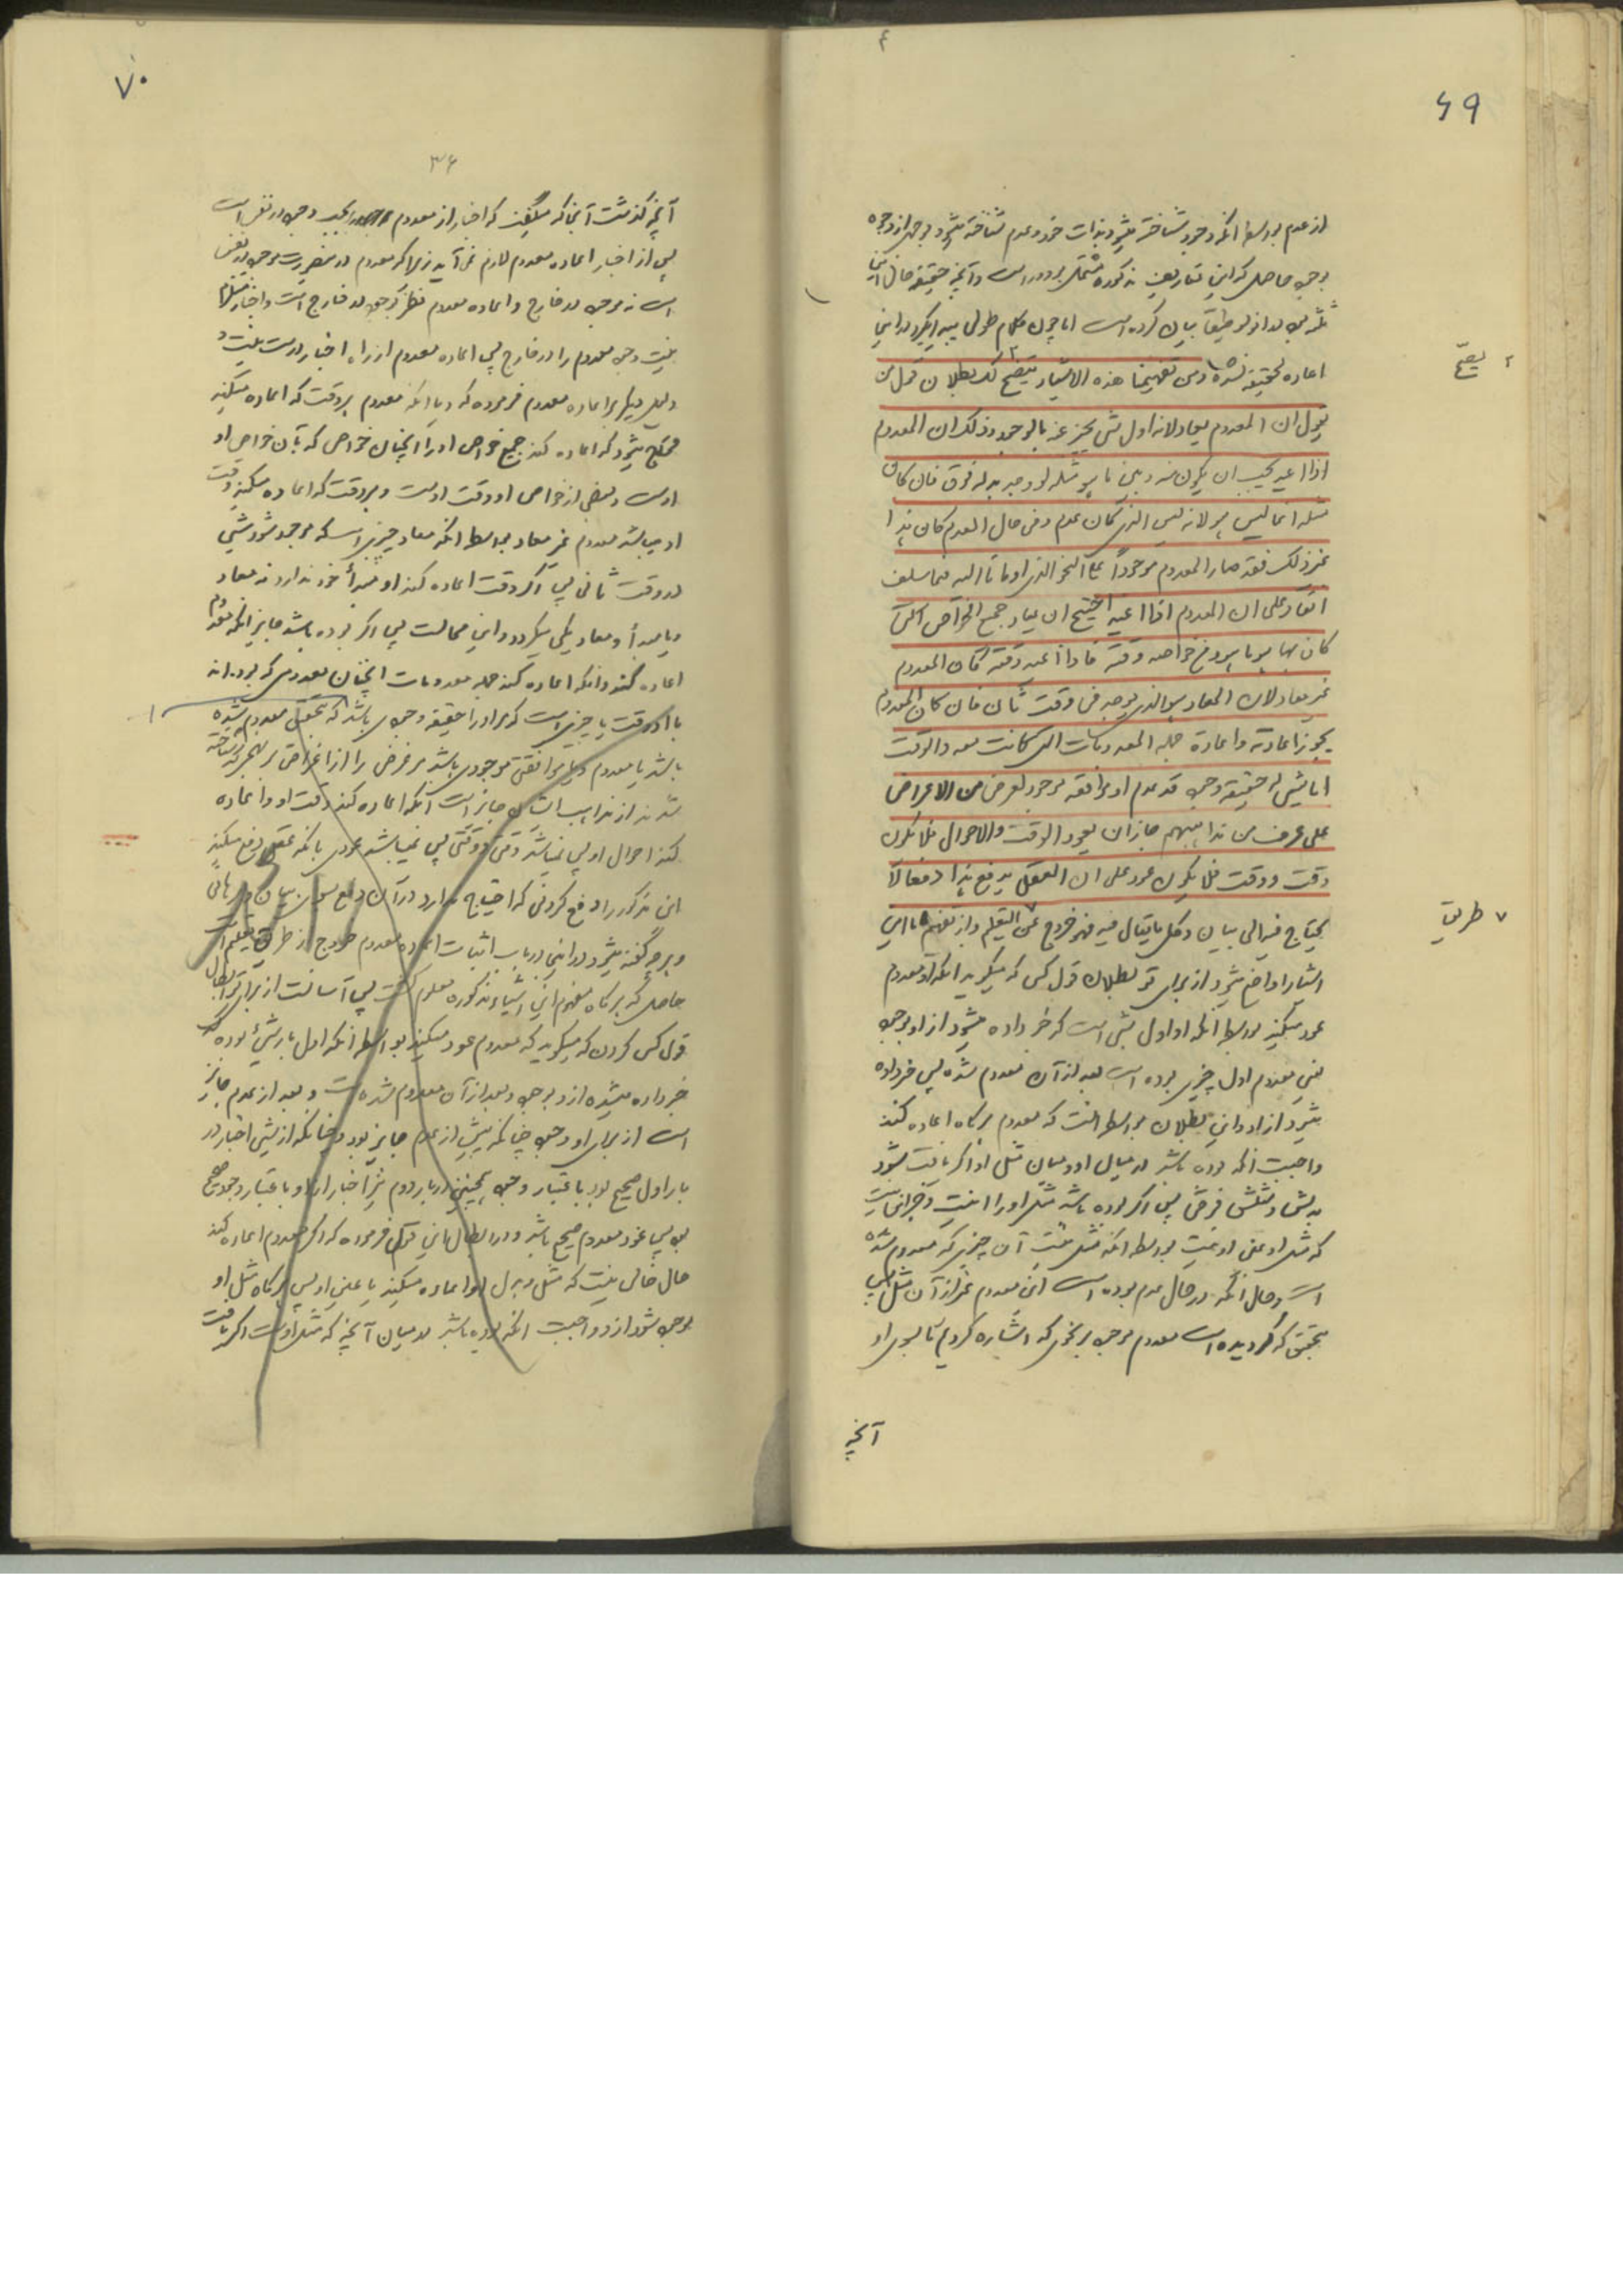 ۶۹
از عدم بواسطه آنکه وجود شناخته میشود بذات خود و عدم شناخته میشود بوجهی از وجوه
بوجود حاصل که این تعاریف مذکوره مشتمل بر دور است و آنچه حقیقة حال این
بیان کرده است اما چون کلام طول
اعاده تحقیقه نشد و من تفهیمنا هذه الاشیاء یتضح لک بطلان قول من
یقول ان المعدوم یعاد لانه اول شئ یخبر عنه بالوجود و ذلک ان المعدوم
اذا اعید یجب ان یکون بینه و بین ما هو مثله لو وجد بدله فرق فان کان
مثله انما لیس هو لانه لیس الذی کان عدم و فی حال العدم کان هذا
غیر ذلک فقد صار المعدوم موجوداً علی النحو الذی اومانا الیه فیما سلف
انفا و علی ان المعدوم اذا اعید احتیج ان یعاد جمیع الخواص التی
کان بها هو ما هو و من خواصه وقته فاذا اعید وقته کان المعدوم
غیر معاد لان المعاد هو الذی یوجد فی وقت ثان فان کان المعدوم
یجوز اعادته و اعادة جمله المعدومات التی کانت معه و الوقت
اما شیئ له حقیقة وجود قد عدم او موافقه موجود لعرض من الاعراض
علی عرف من مذاهبهم جاز ان یعود الوقت والاحوال فلا یکون
وقت و وقت فلا یکون عود علی ان العقل یدفع هذا دفعا لا
یحتاج فیه الی بیان و کل ما یقال فیه فهو خروج عن التعلیم و از تفهیم ما این
اشیاء را واضح میشود از برای تو بطلان قول کسی که میگوید آنکه معدوم
عود میکند بواسطه آنکه او اول شئی است که خبر داده میشود از او بوجود
یعنی معدوم اول چیزی بوده است بعد از آن معدوم شده پس خبر داده
میشود از او و این بطلان بواسطه آنست که معدوم هرگاه اعاده کند
واجبست آنکه بوده باشد در میان او و میان مثل او اگر یافت بشود
بدلش و مثلش فرقی پس اگر بوده باشد مثل او را نیست
که مثل او عین او نیست بواسطه آنکه مثل نیست آن چیزی که معدوم شده
است و حال آنکه در حال عدم بوده است این معدوم غیر از آن مثل پس
بتحقیق که گردیده است معدوم موجود بر نحوی که اشاره کردیم ما بسوی او
آنچه
۲ یصح
۷ طریق
۷۰
۳۶
آنچه گذشت آنجا که میگفت که اخبار از معدوم وجود در نفس است
پس از اخبار اعاده معدوم لازم نمی آید زیرا که معدوم موجود در نفس
است نه موجود در خارج و اعاده معدوم نظر بوجود در خارج است و اخبار
نیست وجود معدوم را در خارج پس اعاده معدوم از راه اخبار درست نیست و
دلیل دیگر بر اعاده معدوم فرموده که و با آنکه معدوم هر وقت که اعاده میکند
محتاج میشود که اعاده کند جمیع خواص او را آنچنان خواص که بآن خواص او
اوست و بعضی از خواص او وقت اوست و هر وقت که اعاده میکند وقت
او میباشد معدوم غیر معاد بواسطه آنکه معاد چیزی است که موجود شود شیئی
در وقت ثانی پس اگر وقت اعاده کند او مبدأ خود ندارد نه معاد
و یا مبدأ و معاد یکی میگردد و این محالست پس اگر بوده باشد جایز آنکه معدوم
اعاده کند و آنکه اعاده کند جمله معدومات آنچنان معدومی که بوده اند
با او وقت یا چیزی است که مر او را حقیقة وجودی باشد که بتحقیق معدوم شده
باشد یا معدوم و یا موافقت موجودی باشد مر عرضی را از اعراض
از مذاهب ایشان جایز است آنکه اعاده کند وقت او و اعاده
کند احوال او پس نمیباشد وقتی و وقتی پس نمیباشد عودی با آنکه عقل دفع میکند
این مذکور را دفع کردنی که احتیاج ندارد در آن دفع بسوی بیان
و هر چه گفته میشود در این در باب اثبات اعاده معدوم خروج از طریق تعلیم است
حاصل که هرگاه مفهوم این اشیاء مذکوره معلوم گشت پس آسانست از برای تو ابطال
قول کسی کردن که میگوید که معدوم عود میکند بواسطه آنکه اول بار شئ بوده که
خبر داده میشده از او بوجود و بعد از آن معدوم شده است و بعد از عدم جایز
است از برای او وجود چنانکه پیش از عدم جایز بود و چنانکه از شئ اخبار در
بار اول صحیح بود باعتبار وجود همچنین در بار دوم نیز اخبار از او باعتبار وجود صحیح
بود پس عود معدوم صحیح باشد و در ابطال این قول فرموده که اگر معدوم اعاده کند
حال خالی نیست که مثل و بدل او اعاده میکند یا عین او پس هرگاه مثل او
موجود شود از او واجبست آنکه بوده باشد در میان آنچه که مثل اوست اگر یافت